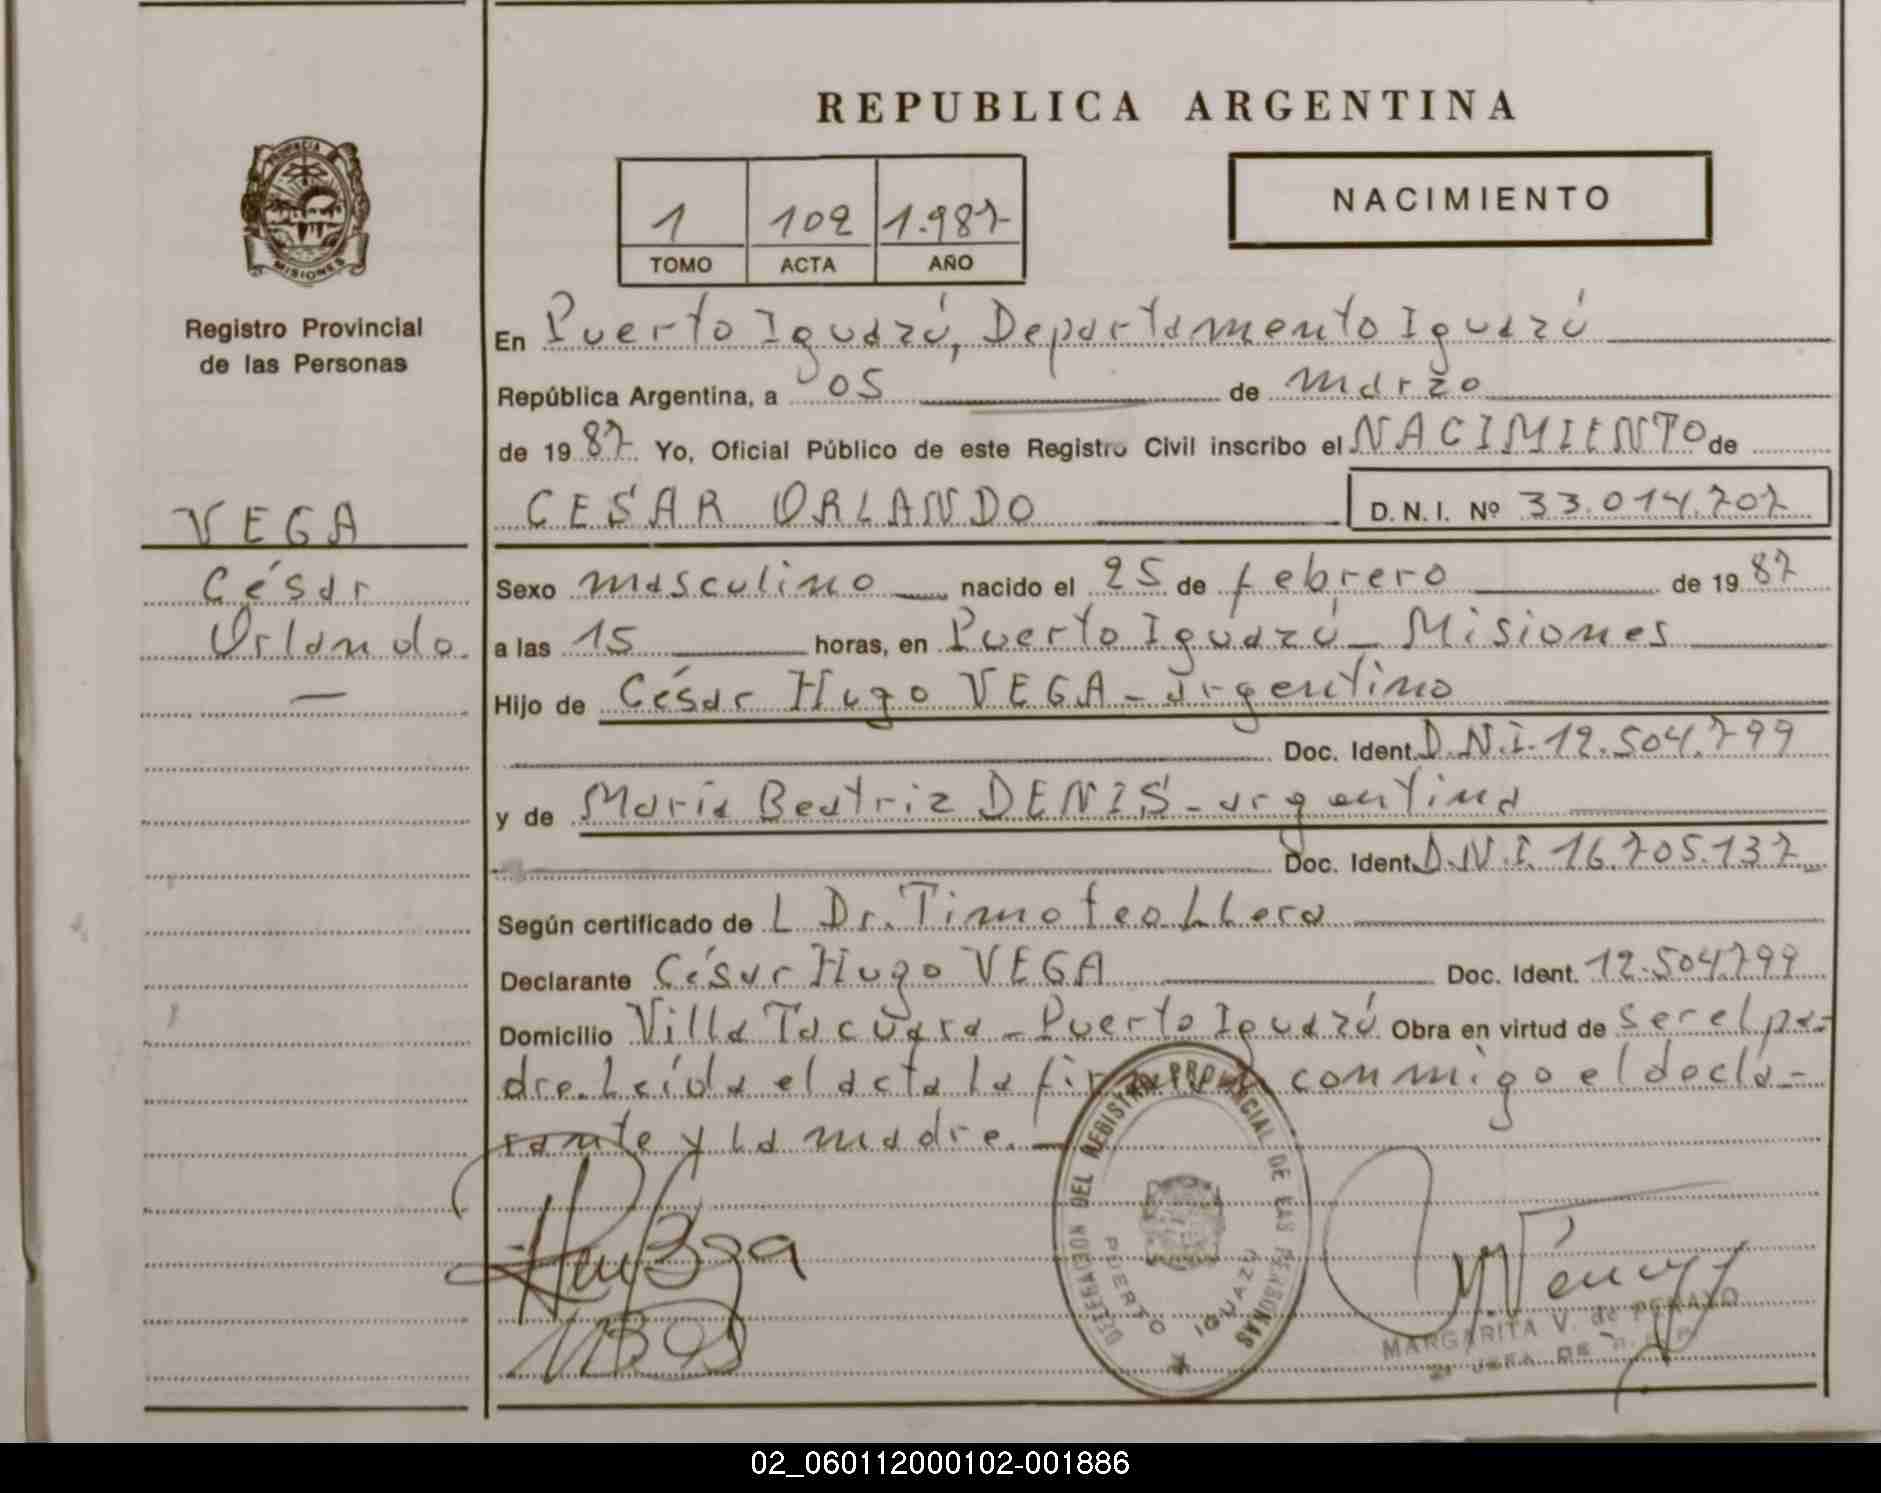 REPUBLICA ARGENTINA
PROVINCIA
MISIONES
Registro Provincial
de las Personas
1 102 1.987
TOMO ACTA AÑO
NACIMIENTO
En Puerto Iguazú, Departamento Iguazú
República Argentina, a 05 de marzo
de 1987 Yo, Oficial Público de este Registro Civil inscribo el NACIMIENTO de
CESAR ORLANDO D. N. I. Nº 33.014.707
VEGA
César
Orlando.
Sexo masculino nacido el 25 de febrero de 1987
a las 15 horas, en Puerto Iguazú - Misiones
Hijo de César Hugo VEGA - argentino
Doc. Ident. D.N.I. 12.504.799
y de María Beatriz DENIS - argentina
Doc. Ident. D.N.I. 16.705.137
Según certificado de L Dr. Timoteo LLera
Declarante César Hugo VEGA Doc. Ident. 12.504799
Domicilio Villa Tacuara - Puerto Iguazú Obra en virtud de ser el pa-
dre. Leída el acta la firman conmigo el decla-
rante y la madre.
DELEGACION DEL REGISTRO PROVINCIAL DE LAS PERSONAS
PUERTO IGUAZU
MARGARITA V. de PERAYO
JEFA DE
02_060112000102-001886